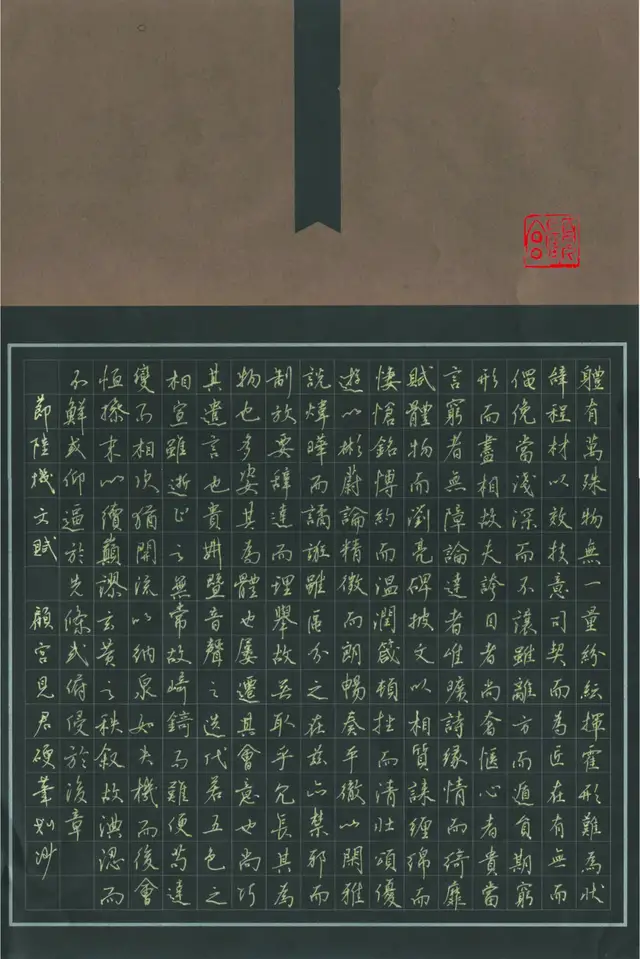 體有萬殊物無一量紛紜揮霍形難為狀
辭程材以效技意司契而為匠在有無而
僶俛當淺深而不讓雖離方而遁員期窮
形而盡相故夫誇目者尚奢愜心者貴當
言窮者無隘論達者唯曠詩緣情而綺靡
賦體物而瀏亮碑披文以相質誄纏綿而
悽愴銘博約而溫潤箴頓挫而清壯頌優
遊以彬蔚論精微而朗暢奏平徹以閑雅
說煒曄而譎誑雖區分之在茲亦禁邪而
制放要辭達而理舉故無取乎冗長其為
物也多姿其為體也屢遷其會意也尚巧
其遣言也貴妍暨音聲之迭代若五色之
相宣雖逝止之無常故崎錡而難便苟達
變而相次猶開流以納泉如失機而後會
恒操末以續顛謬玄黃之秩敘故淟涊而
不鮮或仰逼於先條或俯侵於後章
節陸機文賦 顧宮見君硬筆划沙